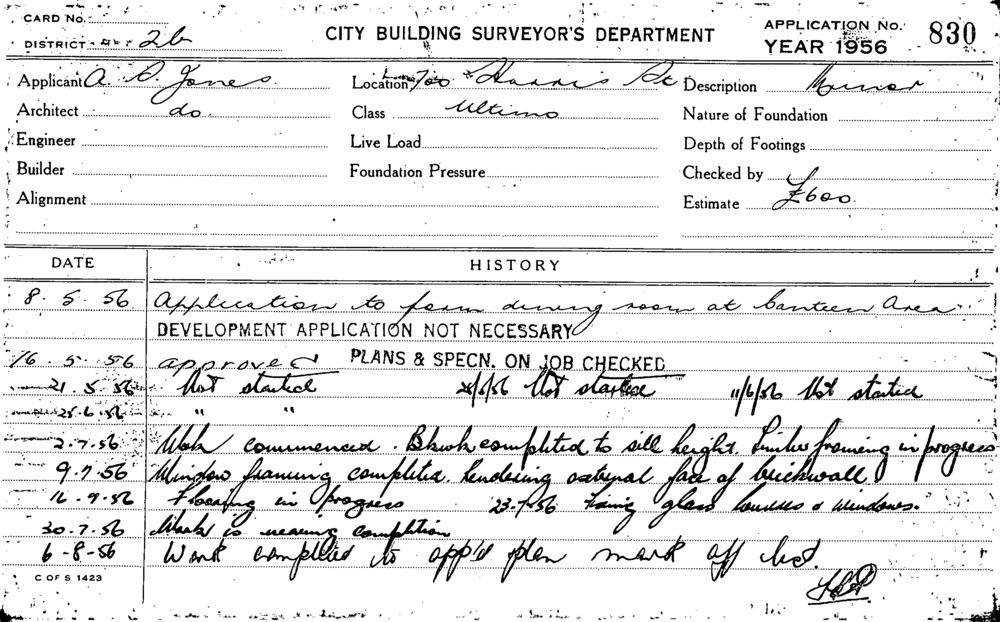 CARD No.
DISTRICT 2b
CITY BUILDING SURVEYOR'S DEPARTMENT
APPLICATION No. 830
YEAR 1956
Applicant A. C. Jones
Location 700 Harris St
Description Minor
Architect do.
Class Ultimo
Nature of Foundation
Engineer
Live Load
Depth of Footings
Builder
Foundation Pressure
Checked by
Alignment
Estimate £600.
DATE HISTORY
8. 5. 56 Application to form dining room at Canteen Area
DEVELOPMENT APPLICATION NOT NECESSARY
16. 5. 56 approved PLANS & SPECN. ON JOB CHECKED
21. 5. 56 Not started 28/5/56 Not started 11/6/56 Not started
25.6.56 " "
2.7.56 Work commenced. Bkwk completed to sill height. Timber framing in progress
9.7.56 Window framing completed. Rendering external face of brickwall
16.7.56 Flooring in progress 23.7.56 Fixing glass louvres & windows.
30.7.56 Work is nearing completion
6-8-56 Work completed to app'd plan mark off list.
C OF S 1423